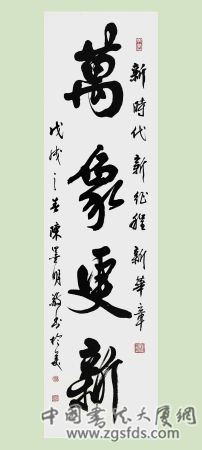 新時代新征程新華章
萬象更新
戊戌之春陳墨明敬书於美
中國書法大廈網
www.zgsfds.com